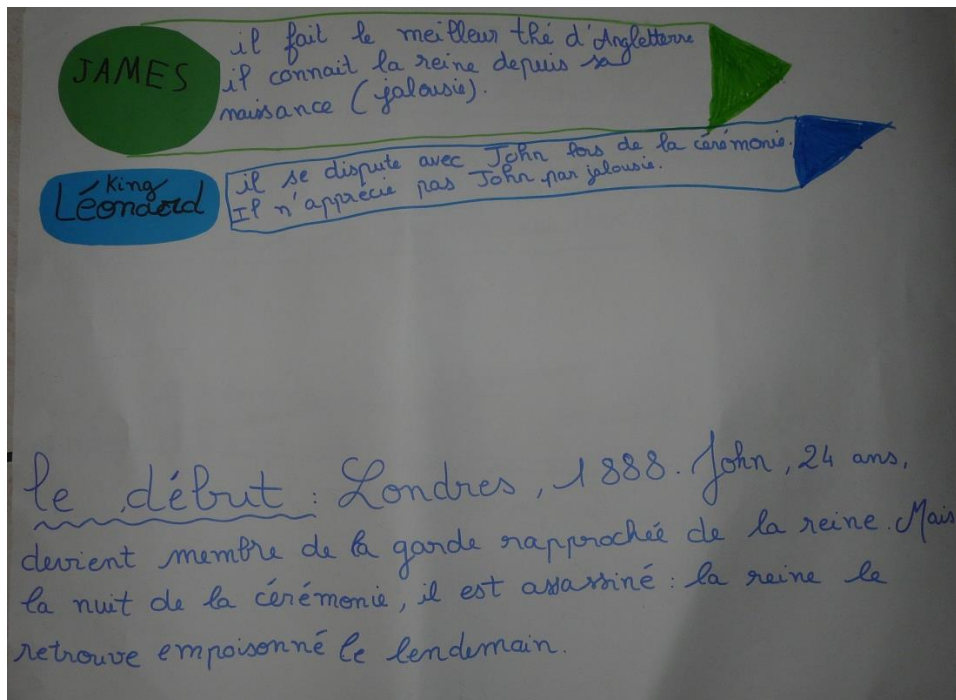 JAMES
il fait le meilleur thé d'Angletterre
il connait la reine depuis sa
naissance (jalousie).
King
Léonard
il se dispute avec John lors de la cérémonie.
Il n'apprécie pas John par jalousie.
le début : Londres, 1888. John, 24 ans,
devient membre de la garde rapprochée de la reine. Mais
la nuit de la cérémonie, il est assassiné : la reine le
retrouve empoisonné le lendemain.